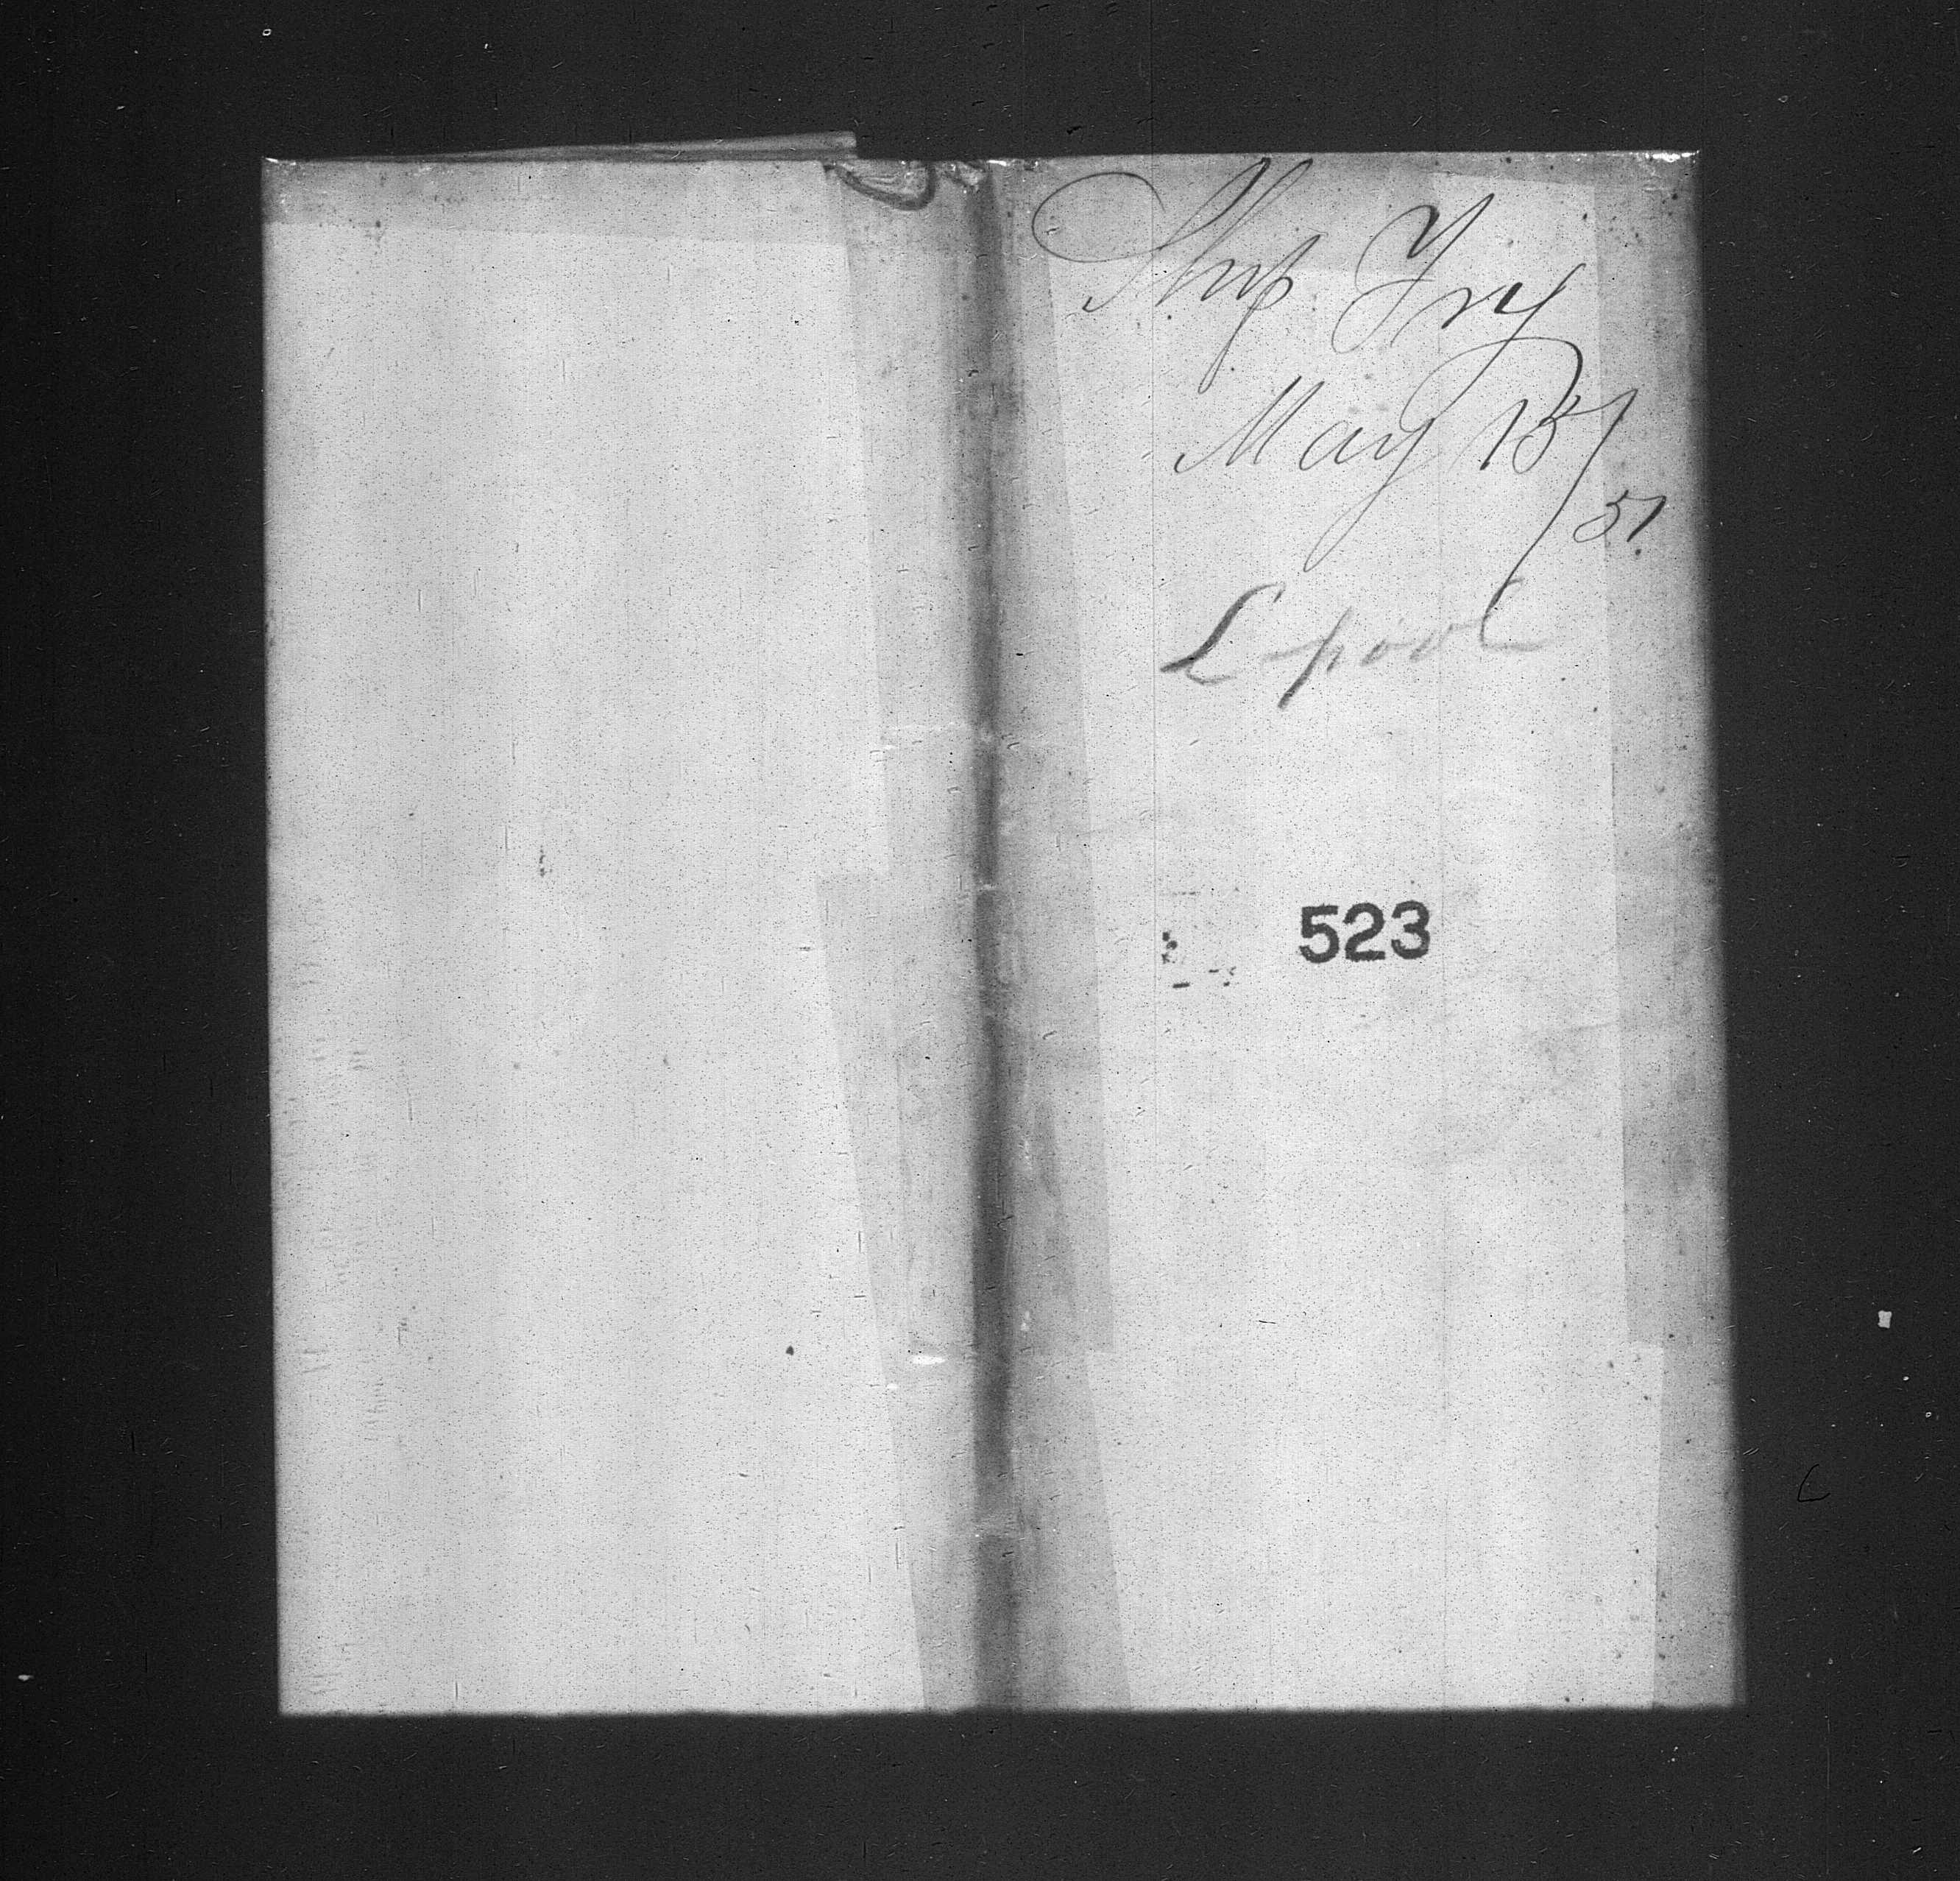 Ship Ivy
May 15/51.
Lpool
523